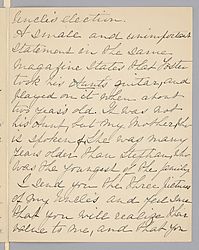 Uncle's election.
A small and unimportant
statement in the same
magazine states that Foster
took his Aunts guitar, and
played on it when about
two years old. It was not
his Aunt, but my Mother who
is spoken of. She was many
years older than Stephen, who
was the youngest of the family.
I send you the three pictures
of my Uncle's and feel sure
that you will realize their
value to me, and that you